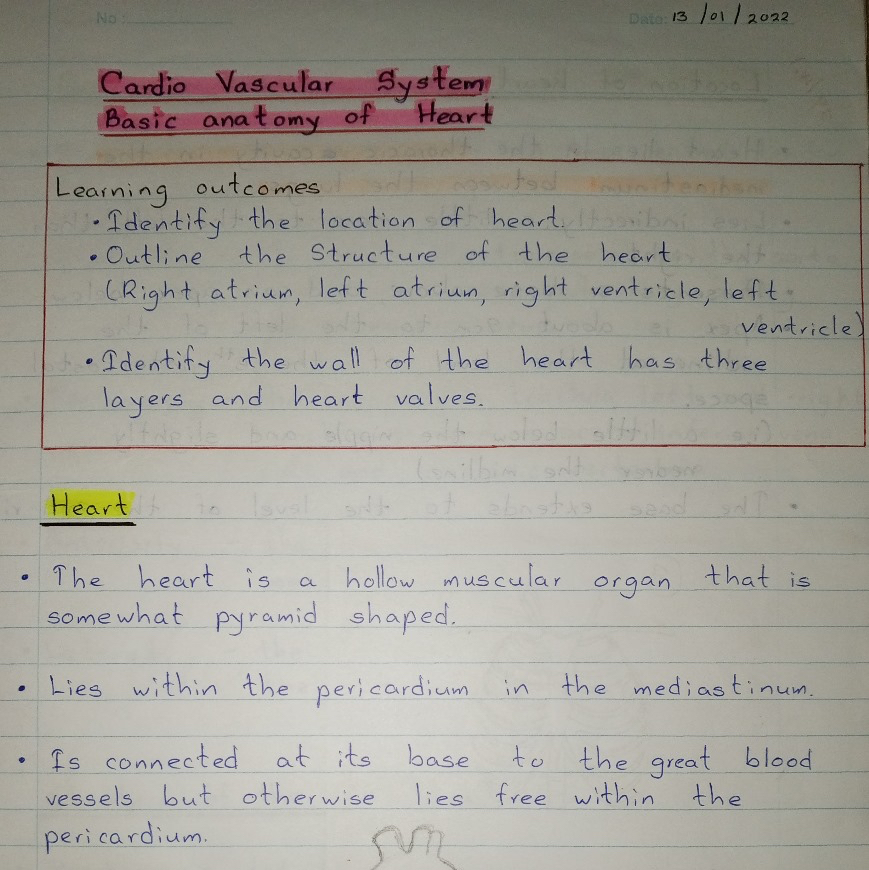 No :
Date: 13 / 01 / 2022
Cardio Vascular System
Basic anatomy of Heart
Learning outcomes
• Identify the location of heart.
• Outline the Structure of the heart
(Right atrium, left atrium, right ventricle, left
ventricle)
• Identify the wall of the heart has three
layers and heart valves.
Heart
• The heart is a hollow muscular organ that is
somewhat pyramid shaped.
• Lies within the pericardium in the mediastinum.
• Is connected at its base to the great blood
vessels but otherwise lies free within the
pericardium.